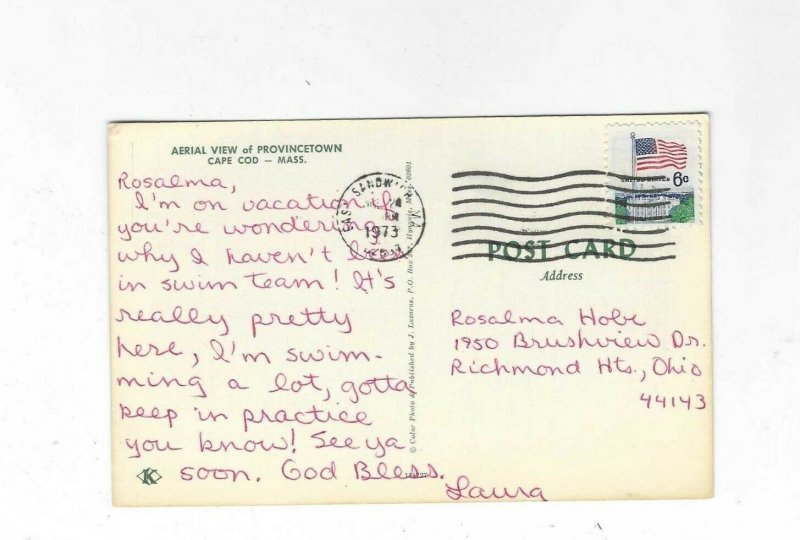 AERIAL VIEW of PROVINCETOWN
CAPE COD — MASS.
Rosalma,
I'm on vacation if
you're wondering
why I haven't been
in swim team! It's
really pretty
here, I'm swim-
ming a lot, gotta
keep in practice
you know! See ya
soon. God Bless.
Laura
K
© Color Photo & Published by J. Lazarus, P.O. Box Hyannis, Mass. 02601
EAST SANDWICH
1973
UNITED STATES
6c
POST CARD
Address
Rosalma Hobe
1950 Brushview Dr.
Richmond Hts., Ohio
44143